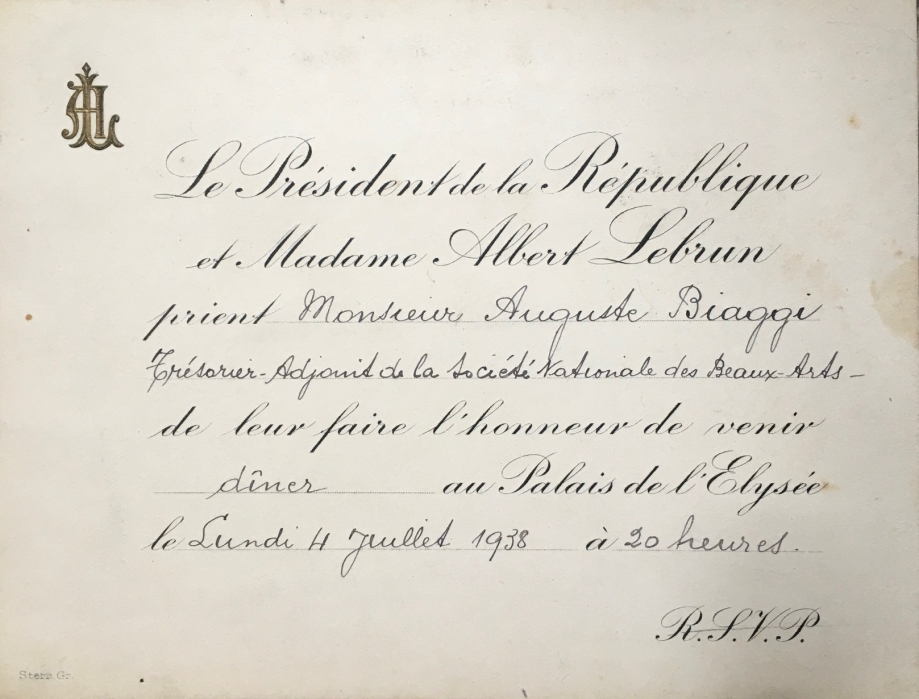 AL
Le Président de la République
et Madame Albert Lebrun
prient Monsieur Auguste Biaggi
Trésorier-Adjoint de la Société Nationale des Beaux-Arts-
de leur faire l'honneur de venir
dîner au Palais de l'Elysée
le Lundi 4 Juillet 1938 à 20 heures.
R.S.V.P.
Stern Gr.